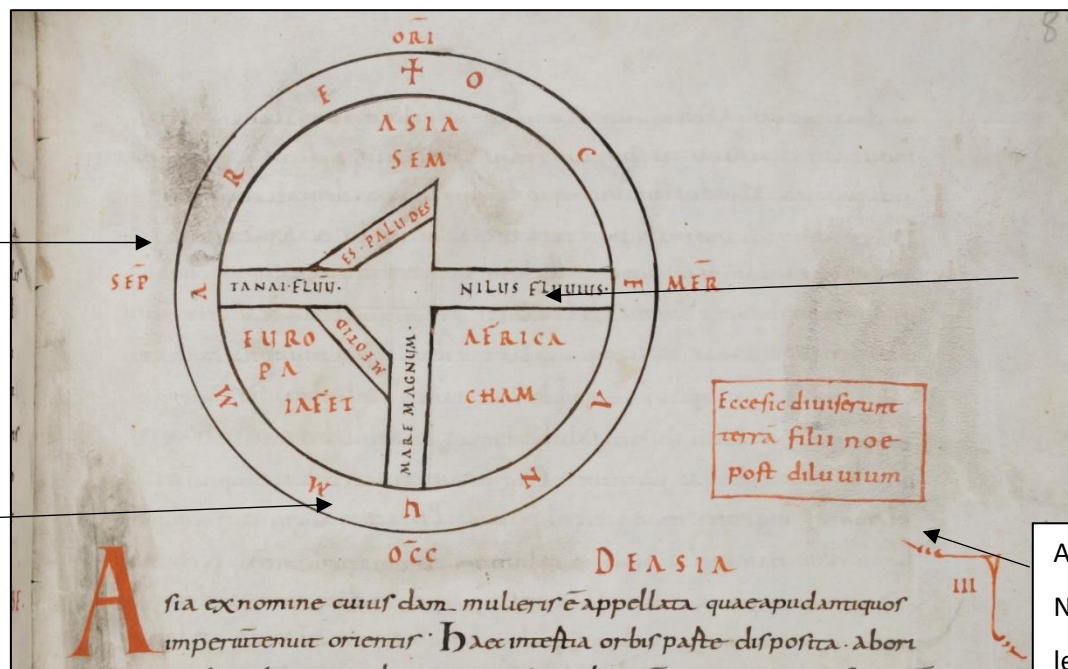 8
ORĪ
MARE + OCEANUM
ASIA
SEM
ES·PALUDES
SEP̄
TANAI·FLUŪ·
NILUS FLUUIUS·
MER̄
EURO
PA
IAFET
MEOTID
MARE MAGNUM·
AFRICA
CHAM
Ecce sic diuiserunt
terrā filii noe
post diluuium
OC̄C
DE ASIA
III
Asia ex nomine cuius dam mulieris ē appellata quae apud antiquos
imperiū tenuit orientis · Haec in testia orbis parte disposita · abori
A
N
le